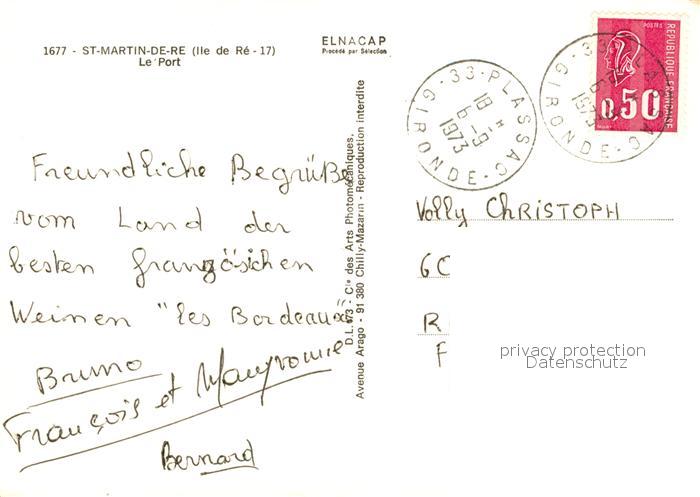 1677 - ST-MARTIN-DE-RE (Ile de Ré - 17)
Le Port
ELNACAP
Procédé par Sélection
POSTES
REPUBLIQUE FRANÇAISE
0,50
33 · PLASSAC
18 H
6 - 9
1973
GIRONDE
Freundliche Begrüße
vom Land der
besten französichen
Weinen "les Bordeaux
Bruno
François et
Bernard
D.L. 673 - Cie des Arts Photomécaniques,
Avenue Arago - 91 380 Chilly-Mazarin - Reproduction interdite
Volly CHRISTOPH
6C
R
F
privacy protection
Datenschutz